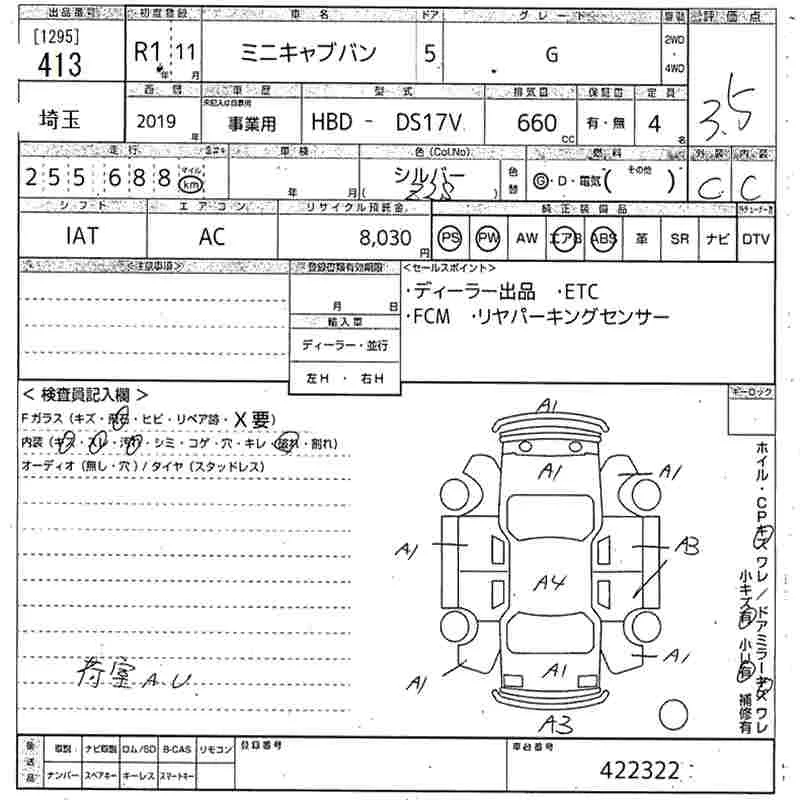 出品番号 初度登録 車名 ドア グレード 駆動 評価点
[1295]
413 R1年 11月 ミニキャブバン 5 G 2WD・4WD 3.5
西暦 車歴 型式 排気量 保証書 定員
未記入は自家用
埼玉 2019年 事業用 HBD - DS17V 660cc 有・無 4名
走行 車検 色(Col.No) 燃料 外装 内装
255,688 マイル km 年 月 シルバー 色替 G・D・電気( その他 ) C C
シフト エアコン リサイクル預託金 純正装備品
IAT AC 8,030円 PS PW AW エアB ABS 革 SR ナビ DTV
<注意事項> 登録書類有効期限 <セールスポイント>
月 日 ・ディーラー出品 ・ETC
輸入車 ・FCM ・リヤパーキングセンサー
ディーラー・並行
左H ・ 右H
< 検査員記入欄 > キーロック
Fガラス (キズ・飛石・ヒビ・リペア跡・X要)
内装 (キズ・スレ・汚れ・シミ・コゲ・穴・キレ・破れ・割れ)
オーディオ (無し・穴) / タイヤ (スタッドレス)
A1
A1 A1
A1 A3
A4
A1 A1 A1
A3
荷室 A.U
ホイル・CPキズワレ/ドアミラーキズワレ
小キズ有 小U有 補修有
後送品 取説 ナビ取説 ロム/SD B-CAS リモコン 登録番号 車台番号
ナンバー スペアキー キーレス スマートキー 422322